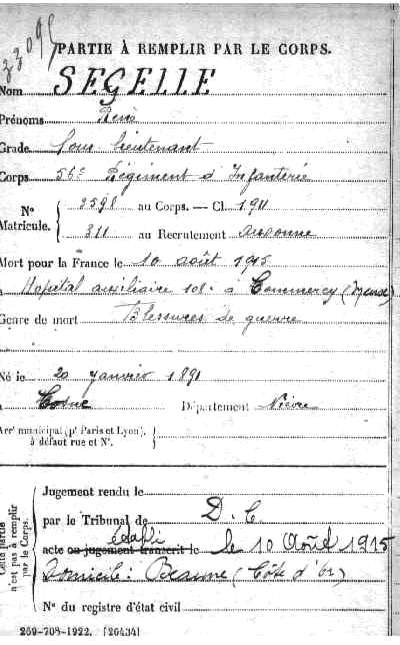 33095
PARTIE À REMPLIR PAR LE CORPS.
Nom SEGELLE
Prénoms René
Grade Sous lieutenant
Corps 56e Régiment d'Infanterie
No Matricule. { 2598 au Corps. — Cl. 1911
311 au Recrutement Auxonne
Mort pour la France le 10 août 1915
à Hopital auxiliaire 108 à Commercy (Meuse)
Genre de mort Blessures de guerre
Né le 20 janvier 1891
à Cosne Département Nièvre
Arrt municipal (pr Paris et Lyon), à défaut rue et No. }
Cette partie n'est pas à remplir par le Corps.
Jugement rendu le
par le Tribunal de D. C.
établi
acte ou jugement transcrit le le 10 Août 1915
Domicile: Beaune (Côte d'Or)
No du registre d'état civil
259-708-1922. [26434]